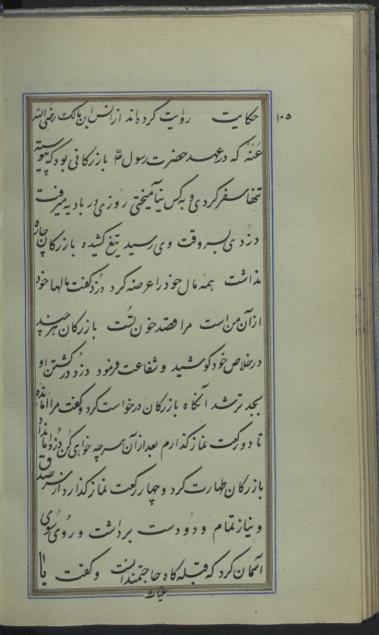 ۱۰۵
حکایت روایت کرده‌اند از انس ابن مالک رضی الله
عنه که در عهد حضرت رسول بازرگانی بود که پیوسته
تنها سفر کردی و بکس نیامیختی روزی در بادیه میرفت
دزدی بسر وقت وی رسید تیغ کشیده بازرگان چاره
نداشت همه مال خود را عرضه کرد دزد گفت مالها خود
از آن من است مرا قصد خون تست بازرگان هر چند
در خلاص خود کوشید و شفاعت فرمود دزد در کشتن او
بجدتر شد آنگاه بازرگان درخواست کرد و گفت مرا امان ده
تا دو رکعت نماز گذارم بعد از آن هر چه خواهی کن دزد امان داد
بازرگان طهارت کرد و چهار رکعت نماز گذارد از سر صدق
و نیاز تمام و دو دست برداشت و روی سوی
آسمان کرد که قبله گاه حاجتمندانست و گفت یا
غیاث